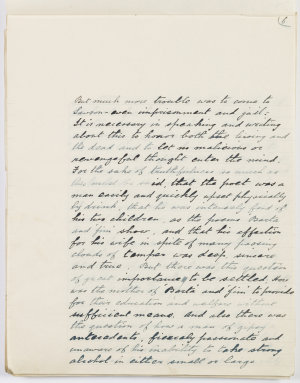 6
But much more trouble was to come to
Lawson – even imprisonment and jail.
It is necessary in speaking and writing
about this to honor both the living and
the dead and to let no malicious or
revengeful thought enter the mind.
For the sake of truthfulness so much as
this must be said that the poet was a
man easily and quickly upset physically
by drink, that he was intensely fond of
his two children, as the poems Barta
and Jim show, and that his affection
for his wife in spite of many passing
clouds of temper was deep, sincere
and true. But there was the question
of great importance to be settled. Her
was the mother of Barta and Jim to provide
for their education and welfare without
sufficient means. And also there was
the question of how a man of gipsy
antecedents, fiercely passionate and
unaware of his inability to take strong
alcohol in either small or large